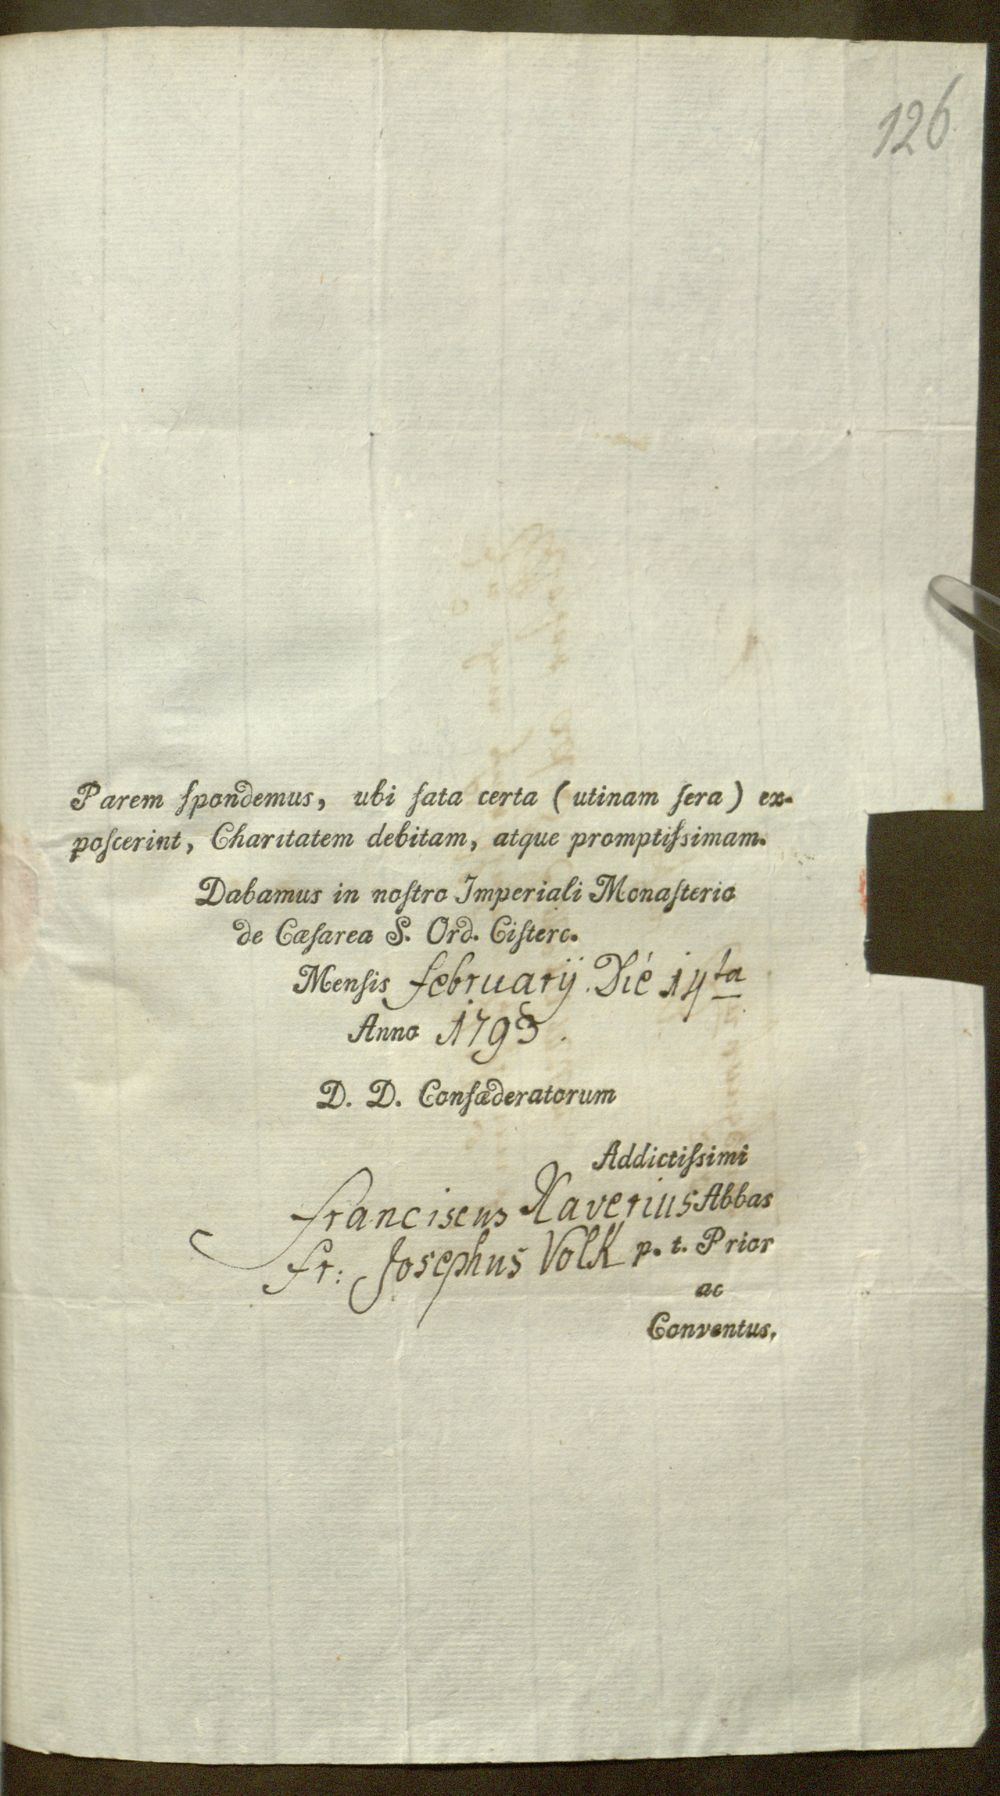 126
Parem ſpondemus, ubi fata certa (utinam ſera) ex-
poſcerint, Charitatem debitam, atque promptiſsimam.
Dabamus in noſtro Imperiali Monaſterio
de Cæſarea S. Ord. Ciſterc.
Menſis februarÿ. Dié 14ta
Anno 1793.
D. D. Confæderatorum
Addictiſsimi
franciscus Xaverius Abbas
fr: Josephus Volk p. t. Prior
ac
Conventus.